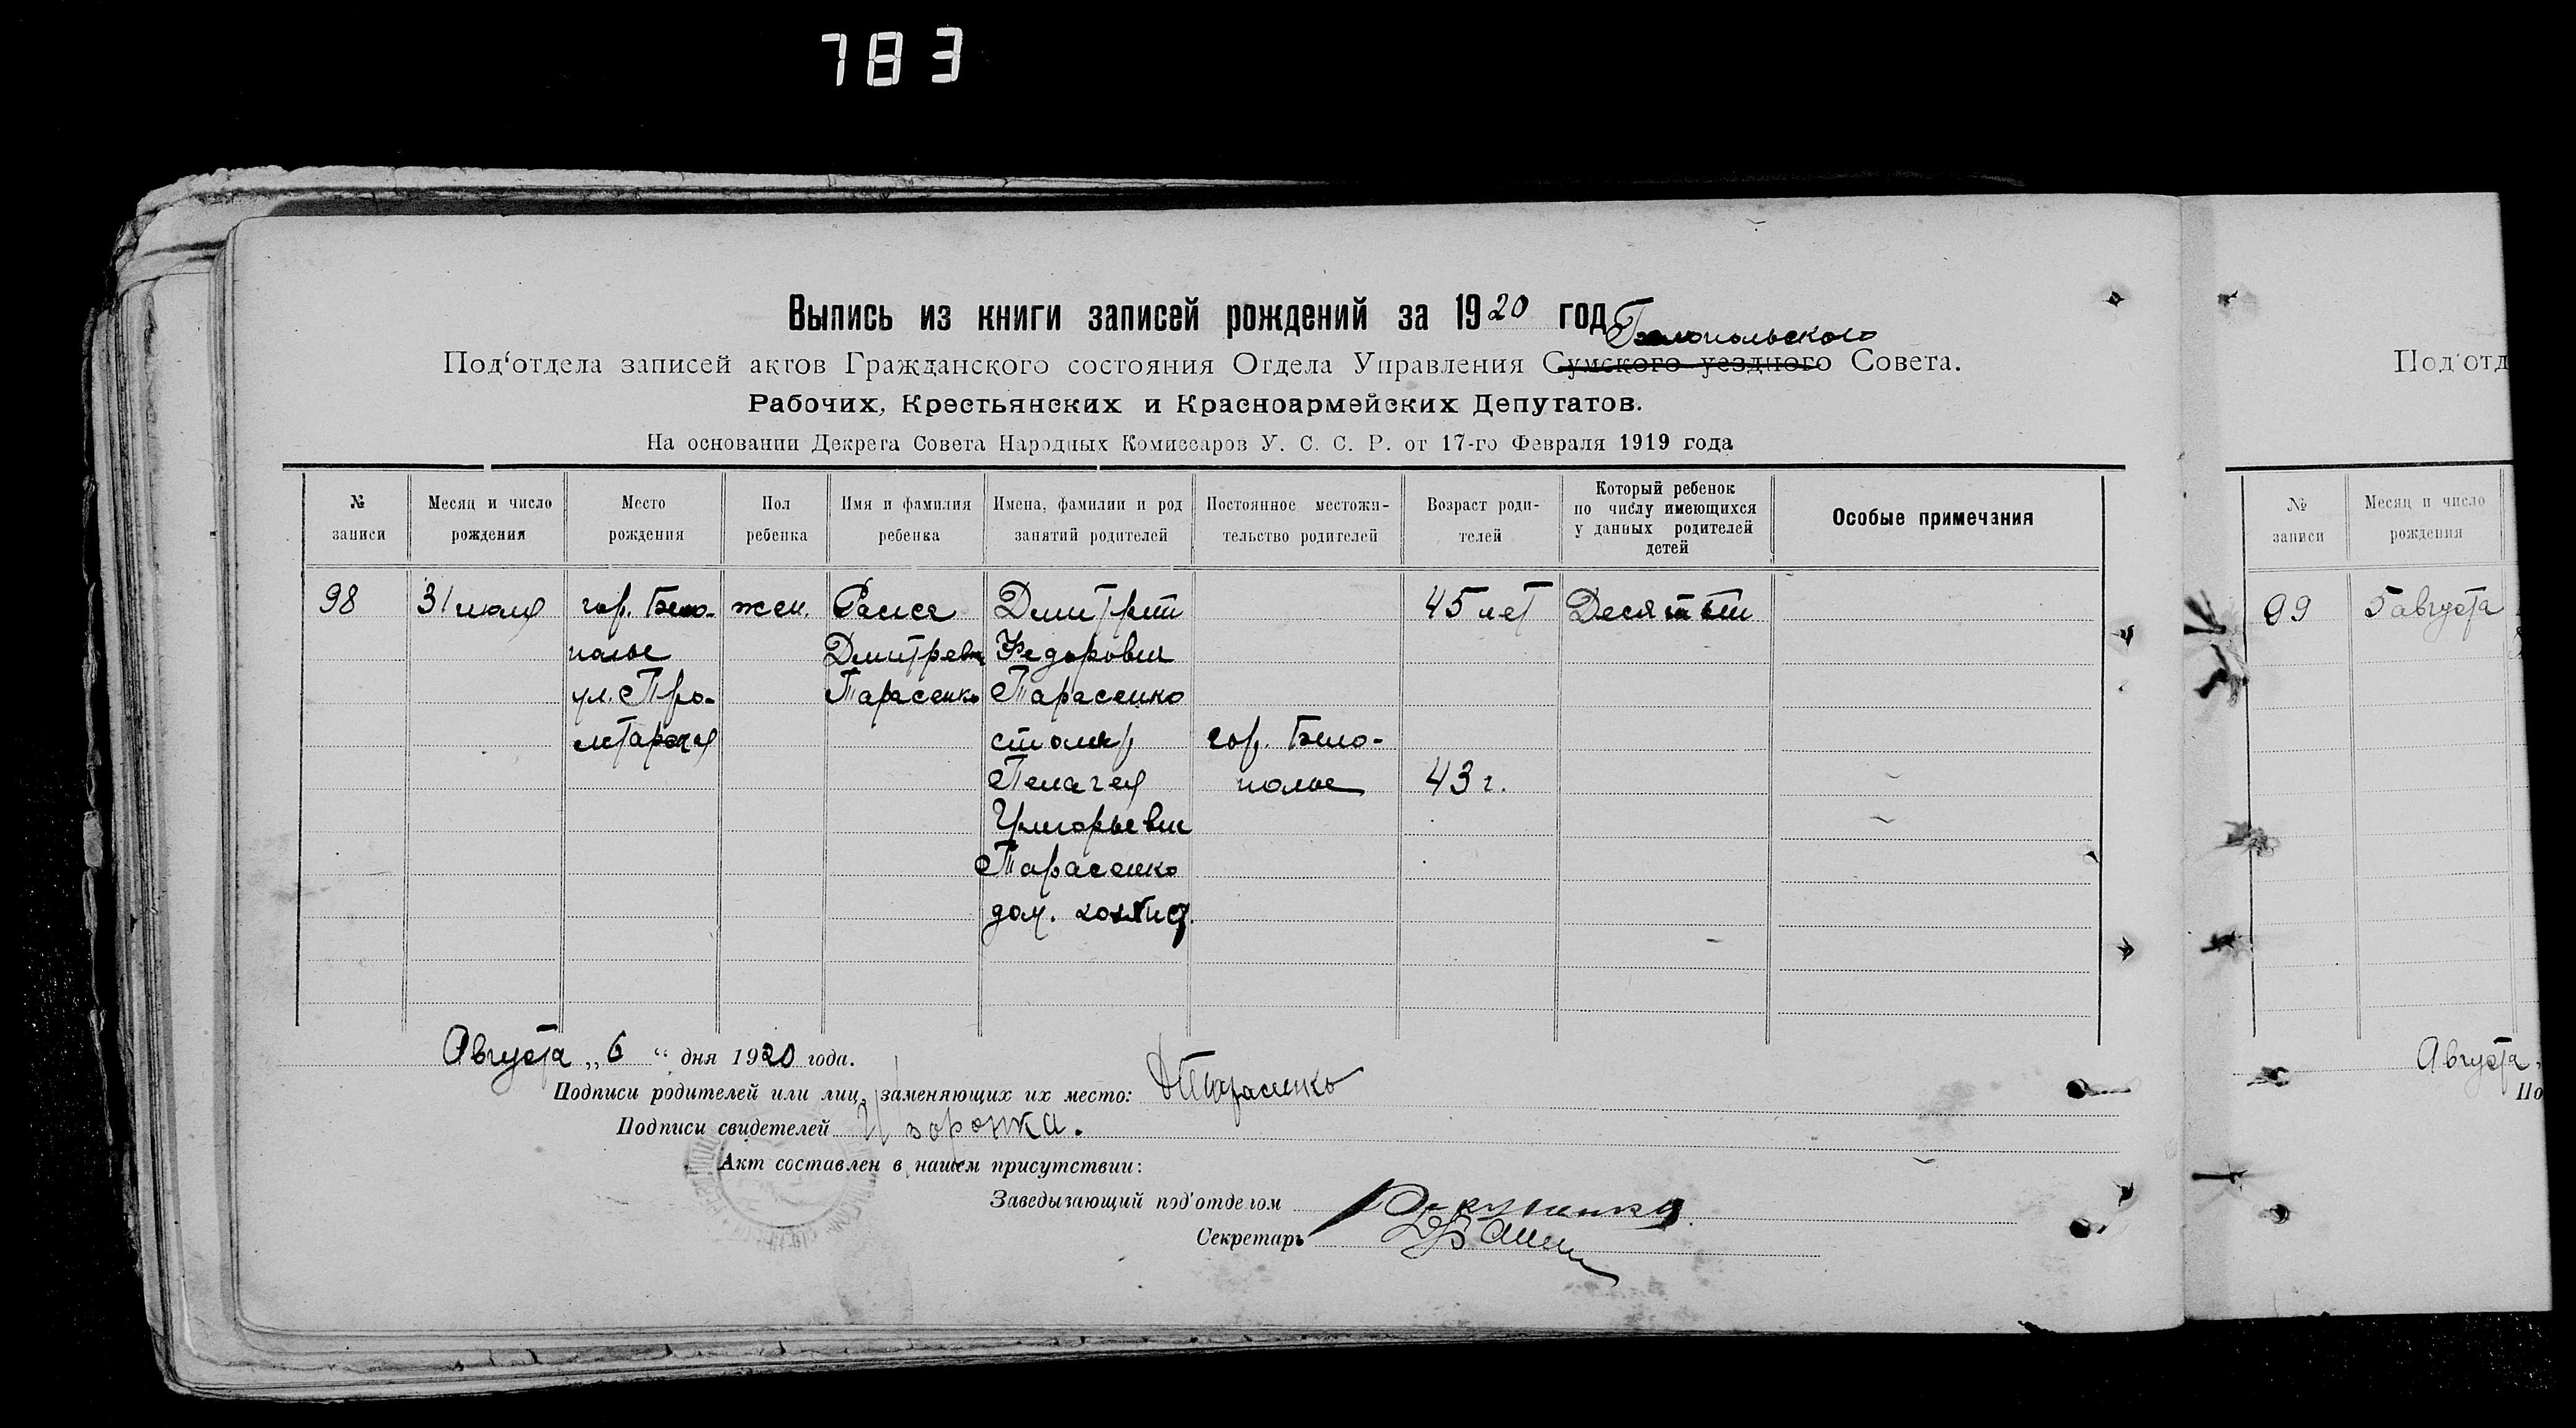 783
Выпись из книги записей рождений за 1920 год
Белопольского
Под‘отдела записей актов Гражданского состояния Отдела Управления Сумского уездного Совета.
Рабочих, Крестьянских и Красноармейских Депутатов.
На основании Декрета Совета Народных Комиссаров У. С. С. Р. от 17-го Февраля 1919 года
№ записи
Месяц и число рождения
Место рождения
Пол ребенка
Имя и фамилия ребенка
Имена, фамилии и род занятий родителей
Постоянное местожительство родителей
Возраст родителей
Который ребенок по числу имеющихся у данных родителей детей
Особые примечания
98 31 июля гор. Бело- жен. Раиса Дмитрий 45 лет Десятый
полье Дмитревн Федорович
ул. Про- Тарасенко Тарасенко
летарская столяр гор. Бело-
Пелагея полье 43 г.
Григорьевн
Тарасенко
дом. хозяйс.
Августа „6“ дня 1920 года.
Подписи родителей или лиц, заменяющих их место: ДТарасенко
Подписи свидетелей
Акт составлен в нашем присутствии:
Заведывающий под‘отделом
Секретарь
Под‘отд
№ записи
Месяц и число рождения
99 5 августа
Августа „
По